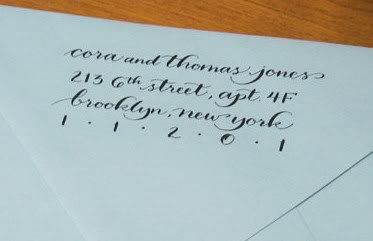 cora and thomas jones
213 6th street, apt. 4F
brooklyn, new york
1 · 1 · 2 · 0 · 1